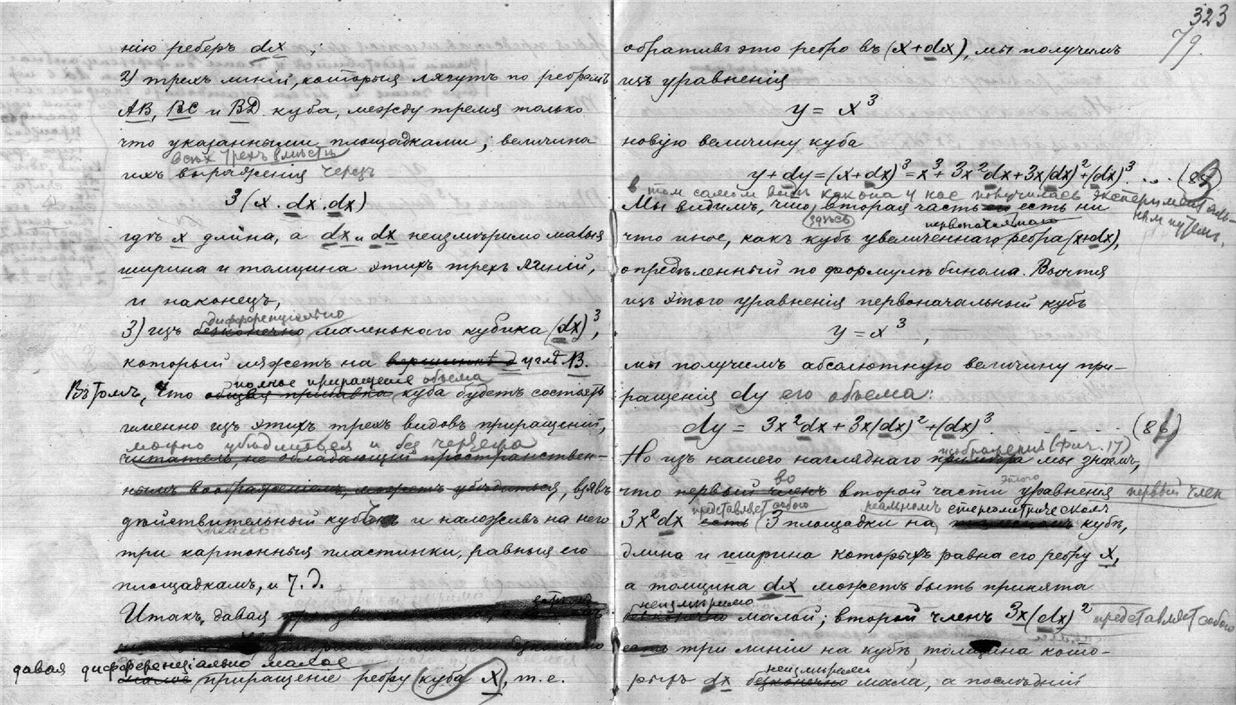 нію реберъ dx ;
2) трехъ линій, которыя лягутъ по ребрамъ
AB, BC и BD куба, между тремя только
что указанными площадками; величина
всѣхъ трехъ вмѣстѣ
ихъ выраженія черезъ
3(x.dx.dx)
гдѣ x длина, а dx и dx неизмѣримо малыя
ширина и толщина этихъ трехъ линій,
и наконецъ,
дифференціально
3) изъ безконечно маленькаго кубика (dx)³,
который ляжетъ на вершинѣ угла B.
полное приращеніе объема
Въ томъ, что общая прибавка куба будетъ состоять
именно изъ этихъ трехъ видовъ приращеній,
можно убѣдиться и без чертежа
читатель, не обладающій пространствен-
нымъ воображеніемъ, можетъ убѣдиться, взявъ
дѣйствительный кубъ и наложивъ на него
три картонныя пластинки, равныя его
площадкамъ, и т.д.
Итакъ, давая
давая дифференціально малое
малое приращеніе ребру куба x, т.е.
323
79.
обративъ это ребро въ (x+dx), мы получимъ
изъ уравненія
y = x³
новую величину куба
y+dy=(x+dx)³=x³+3x²dx+3x(dx)²+(dx)³ ... (83)
в том самом видѣ какъ она у нас получилась экспериментальным путемъ.
Мы видимъ, что вторая часть есть ни
здѣсь первоначальнаго
что иное, какъ кубъ увеличеннаго ребра (x+dx),
опредѣленный по формулѣ бинома. Вычтя
изъ этого уравненія первоначальный кубъ
y = x³,
мы получимъ абсолютную величину при-
ращенія dy его объема:
dy = 3x²dx+3x(dx)²+(dx)³ ... (84)
изображенія (фиг. 17)
Но изъ нашего нагляднаго примѣра мы знаемъ,
во этого
что первый членъ второй части уравненія первый член
представляет собою реальномъ стереометрическомъ
3x²dx есть 3 площадки на кубѣ,
длина и ширина которыхъ равна его ребру x,
а толщина dx можетъ быть принята
неизмѣримо
безконечно малой; второй членъ 3x(dx)² представляет собою
есть три линіи на кубѣ, толщина кото-
неизмѣримо
рыхъ dx безконечно мала, а послѣдній